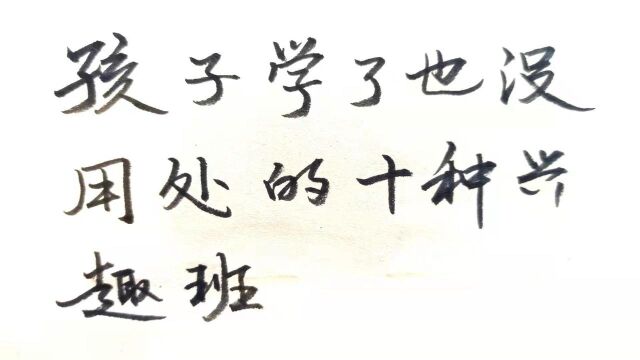 孩子学了也没
用处的十种兴
趣班